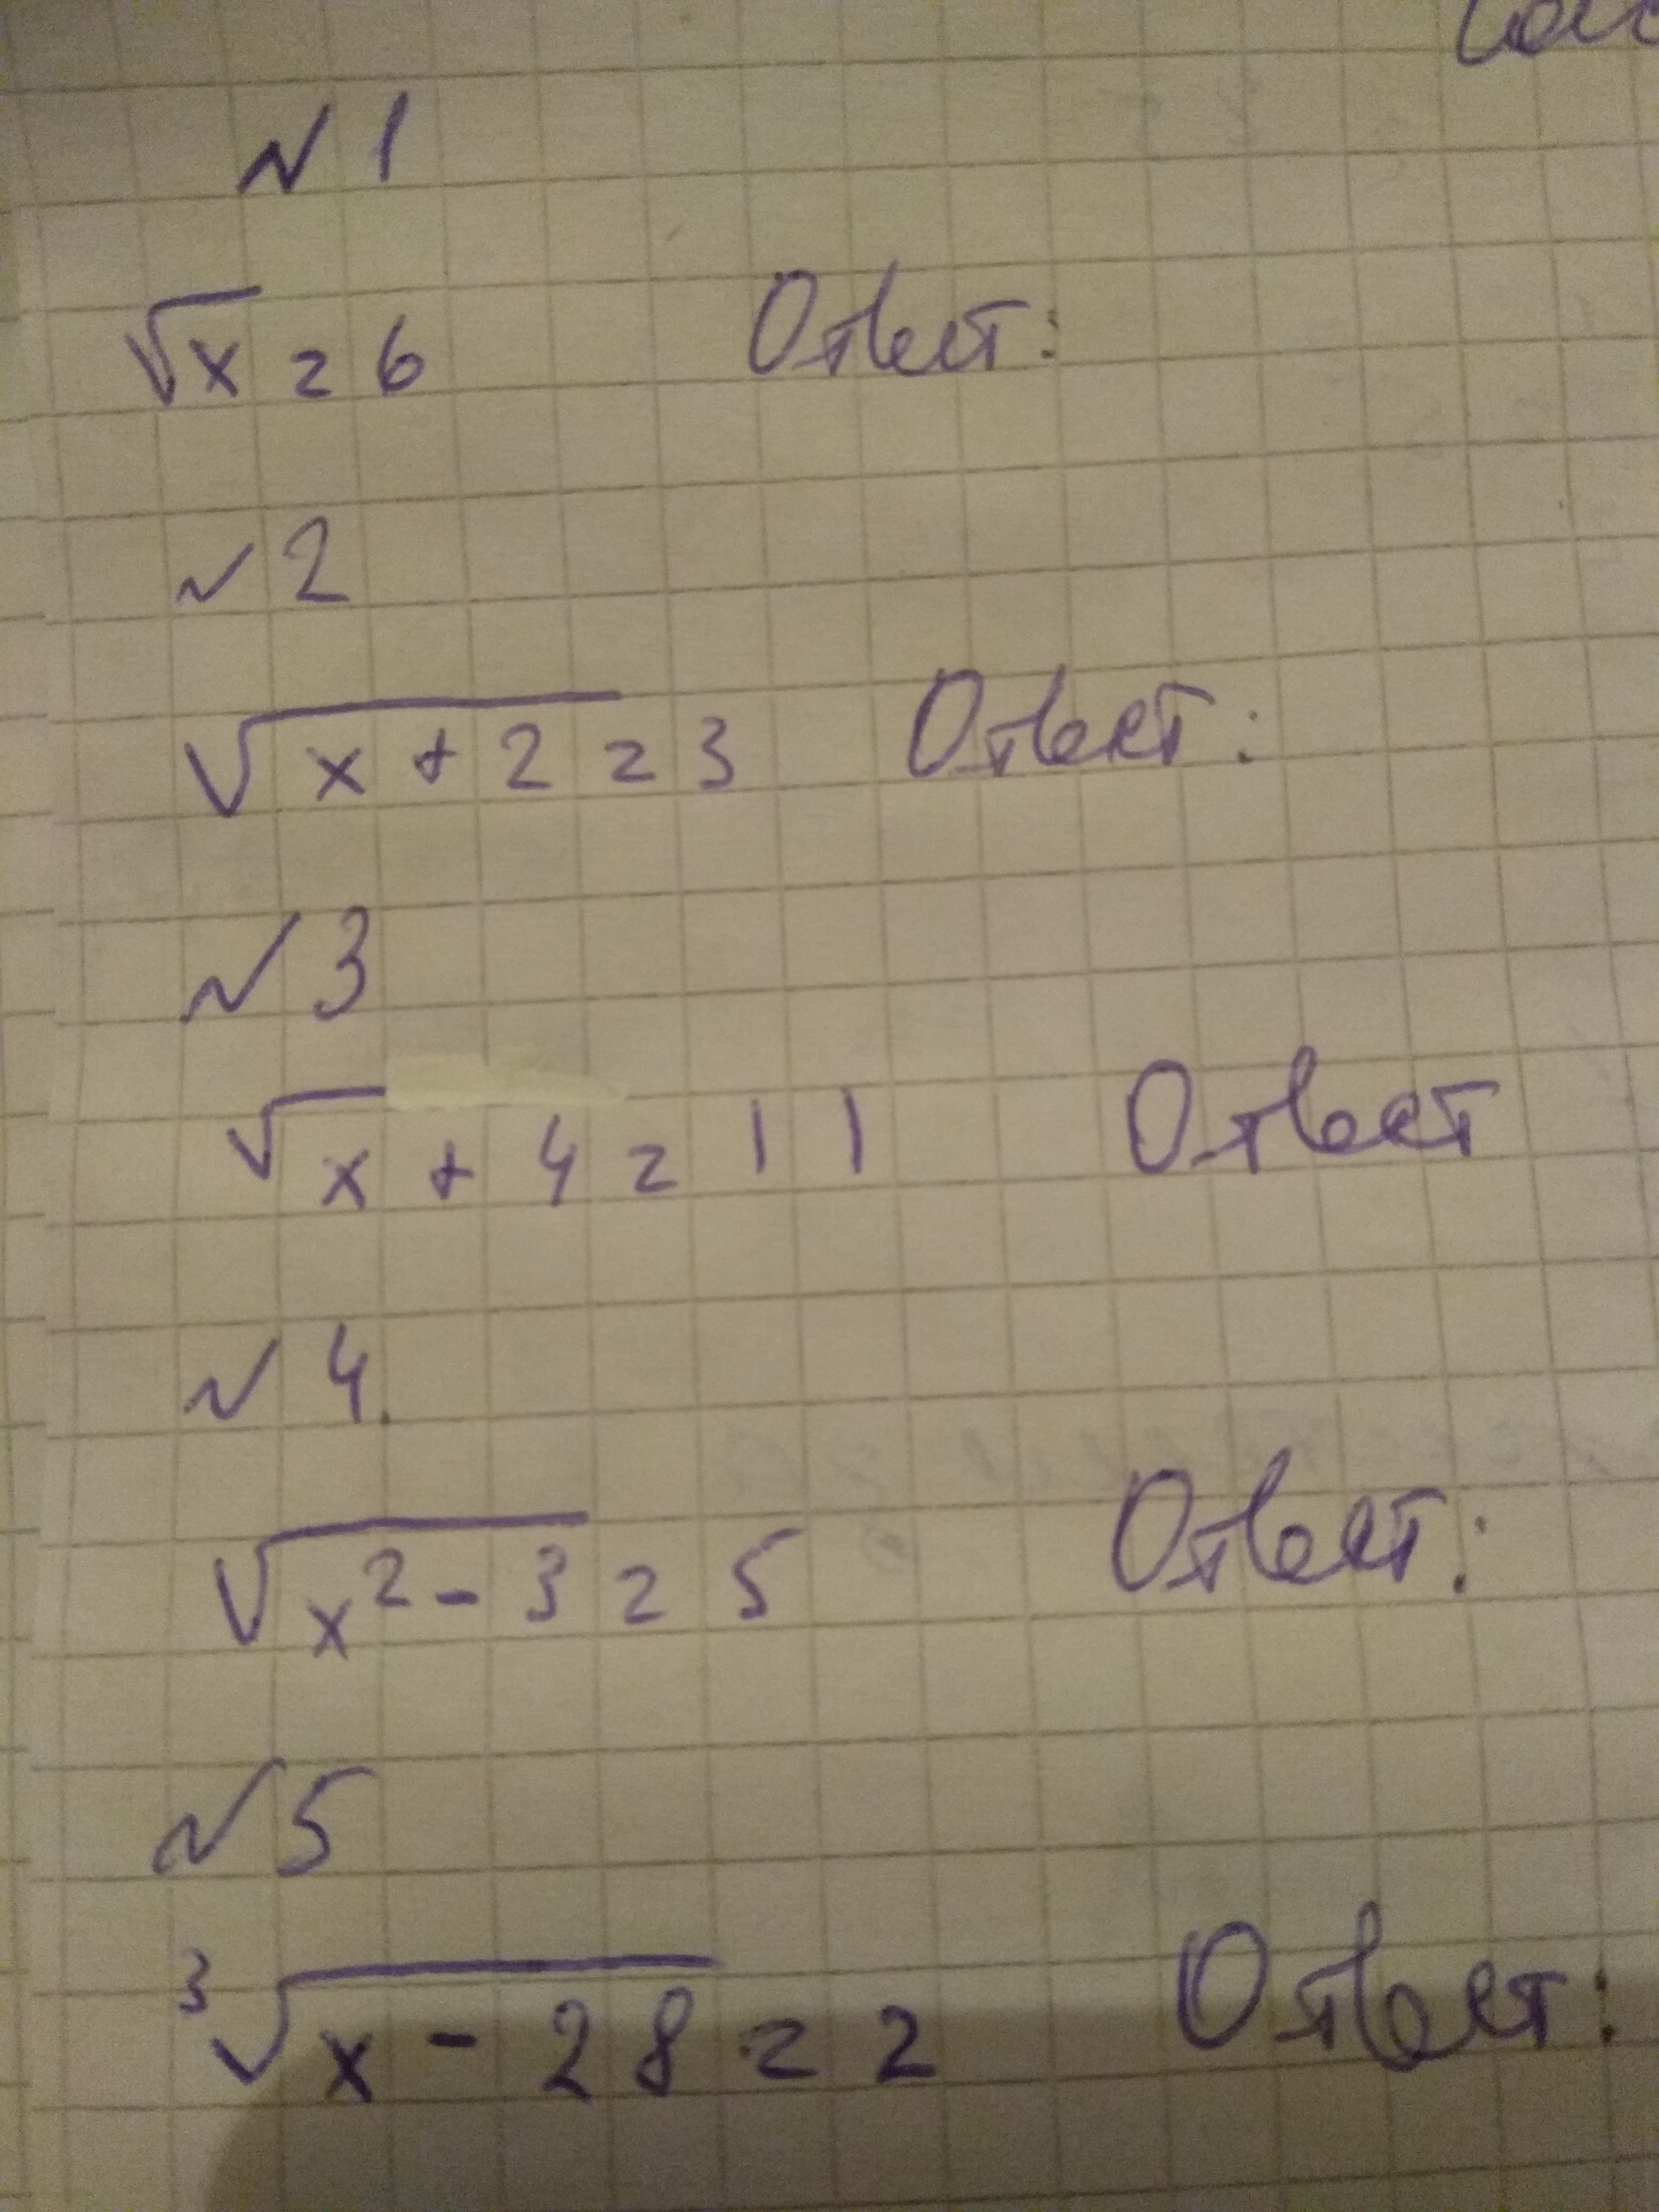 №1
√x = 6 Ответ:
№2
√(x + 2) = 3 Ответ:
№3
√x + 4 = 11 Ответ
№4.
√(x² - 3) = 5 Ответ:
№5
³√(x - 28) = 2 Ответ: